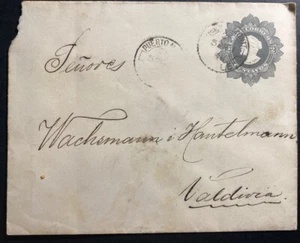 PUERTO
Señores
Wachsmann i Hantelmann
Valdivia.